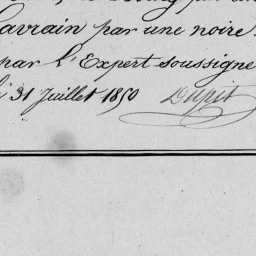 Savrain par une noire
par l'Expert soussigné
31 Juillet 1850 Dupit